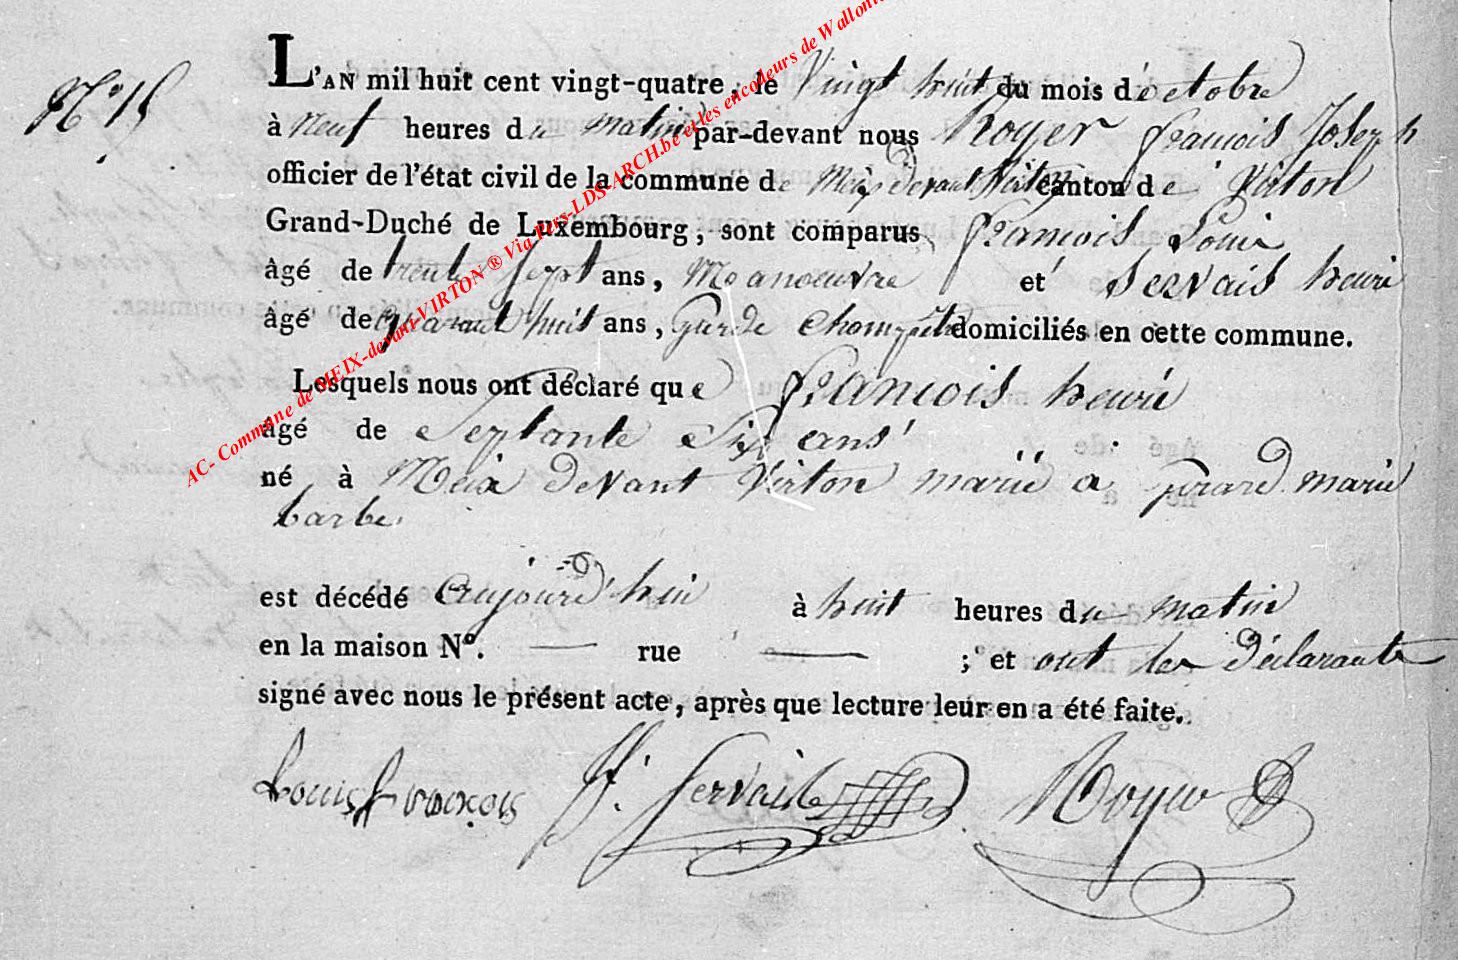 N° 15
L'AN mil huit cent vingt-quatre, le Vingt huit du mois d'octobre
à neuf heures du matin par-devant nous Royer francois Joseph
officier de l'état civil de la commune de Meix devant Virton canton de Virton
Grand-Duché de Luxembourg, sont comparus francois Louis
âgé de trente sept ans, Manoeuvre et Servais henri
âgé de quarante huit ans, garde champetre domiciliés en cette commune.
Lesquels nous ont déclaré que francois henri
âgé de Septante Six ans
né à Meix devant Virton marié a girard marie
barbe
est décédé aujourd'hui à huit heures du matin
en la maison N°. — rue — ; et ont les déclarants
signé avec nous le présent acte, après que lecture leur en a été faite.
Louis francois H. Servais Royer
AC- Commune de MEIX-devant-VIRTON ® Via Fers-LDS-ARCH.be et les encodeurs de Wallonie